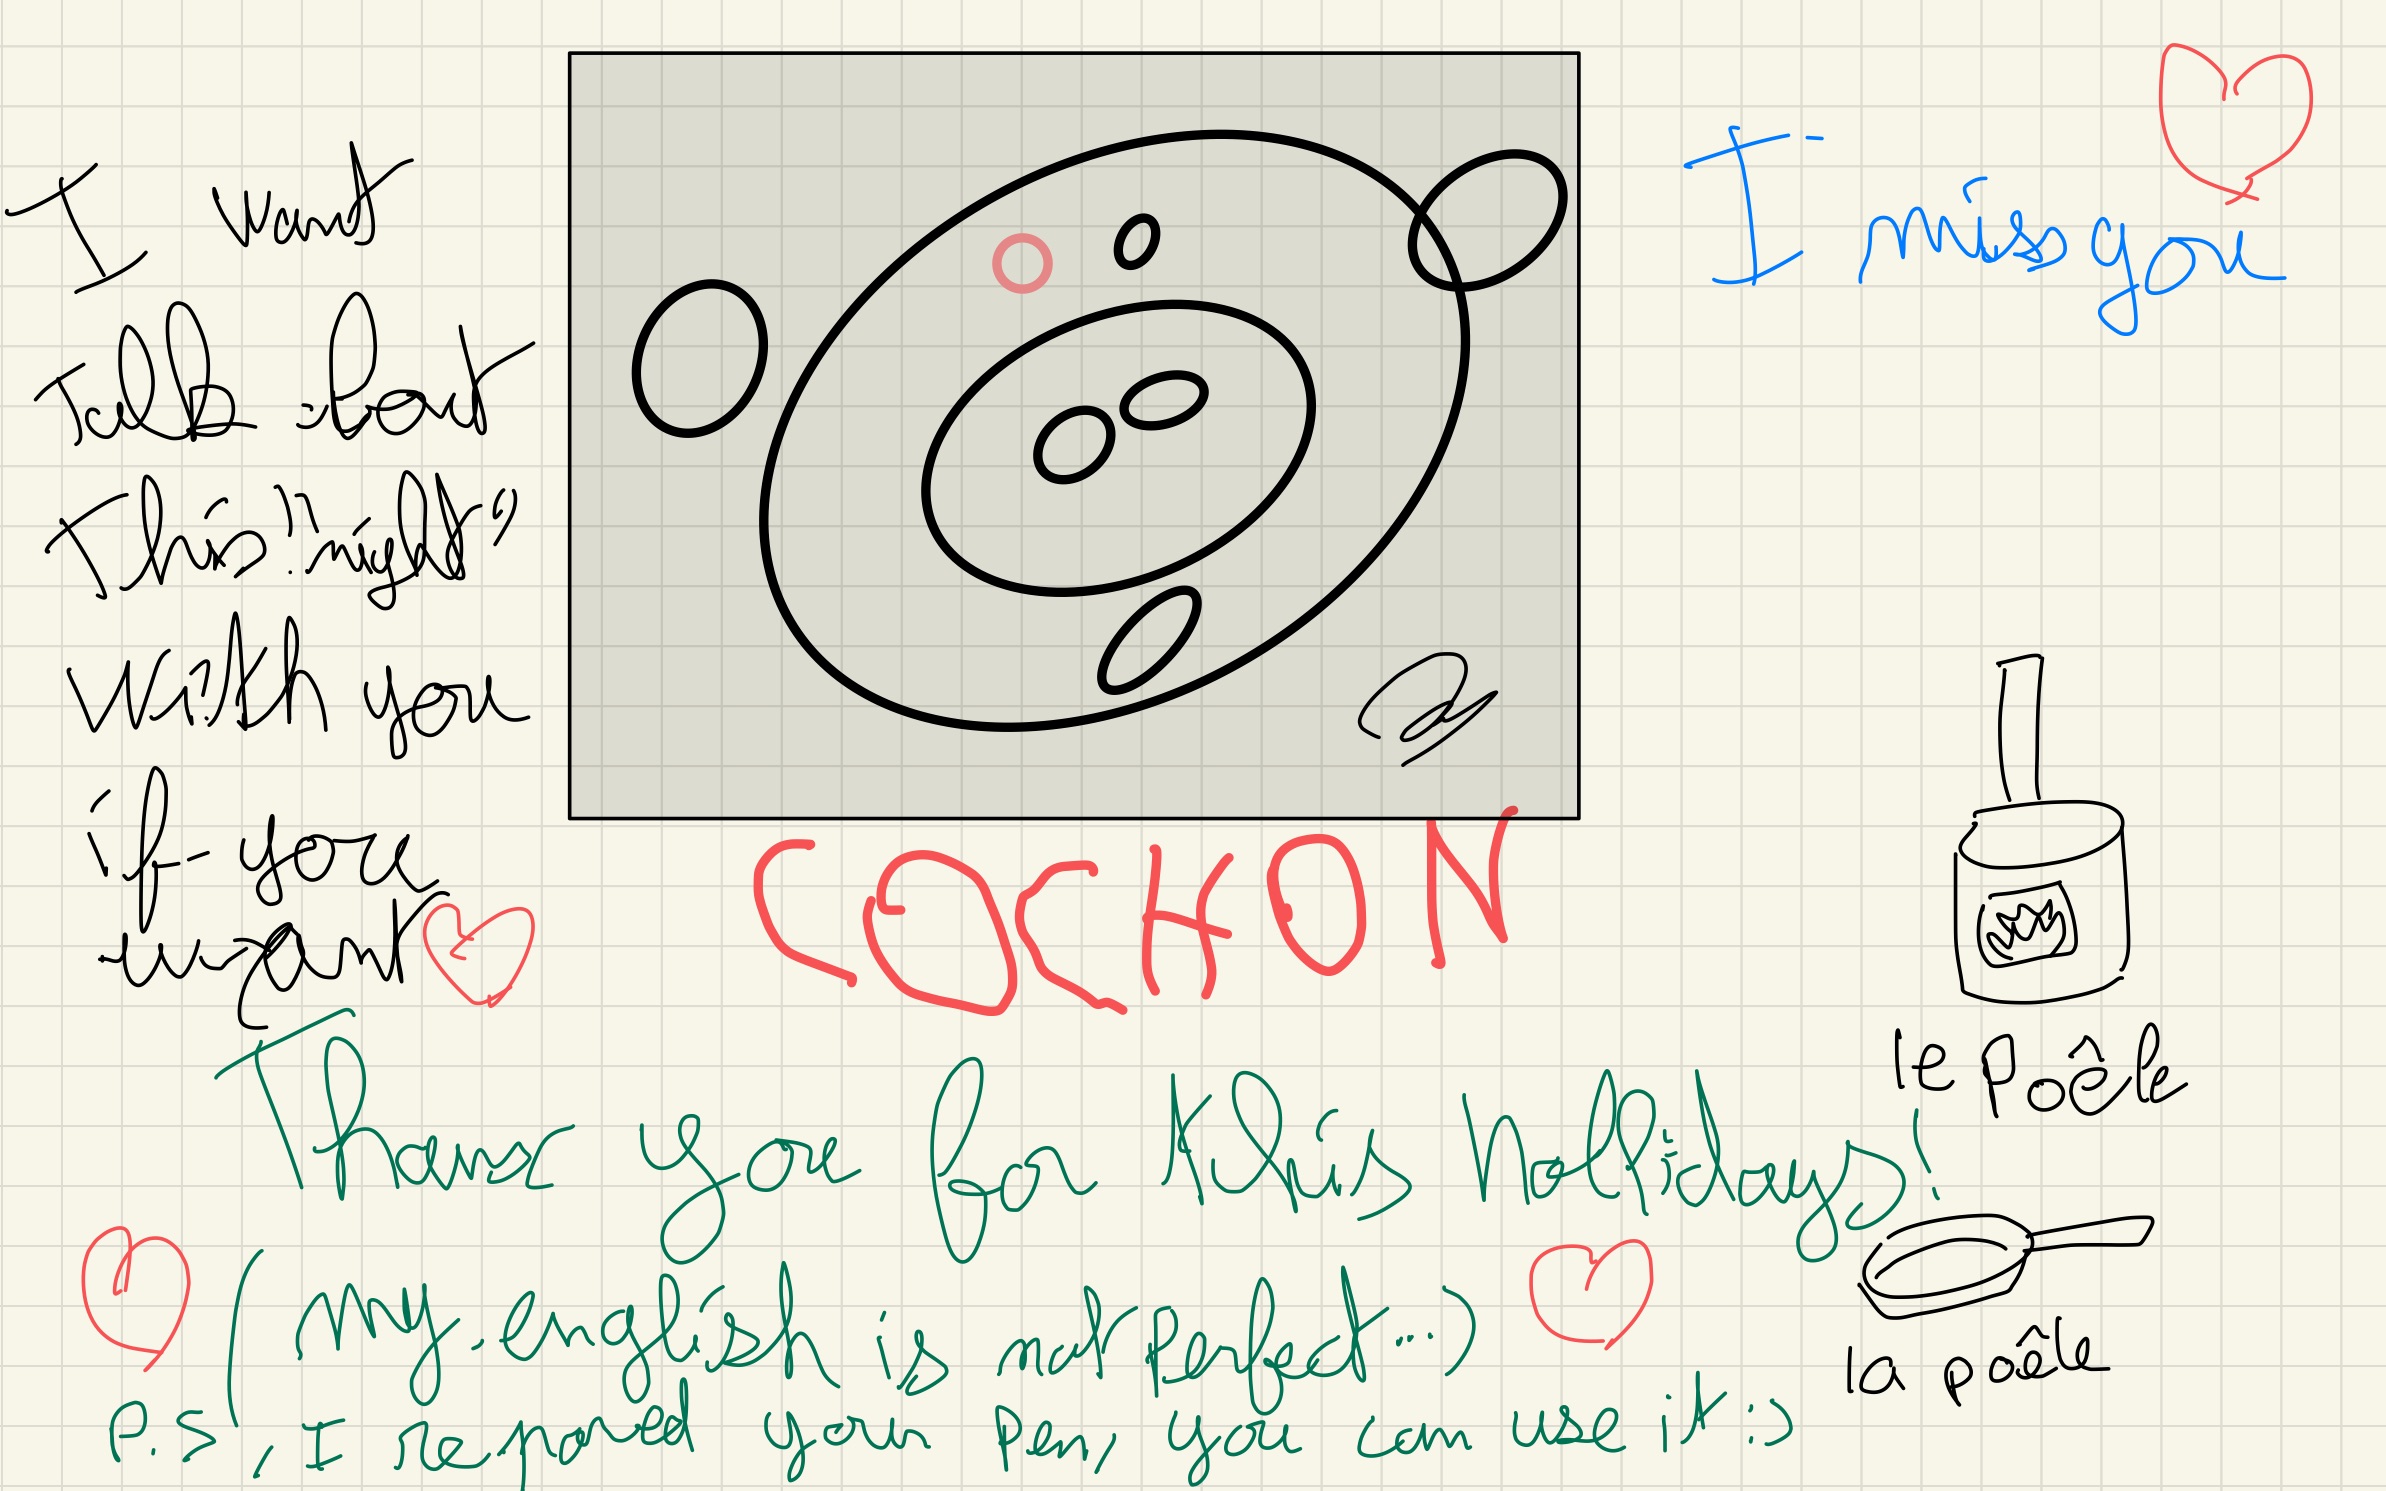 I want
Talk about
This "night"
with you
if you
want
I miss you
COCHON
le poêle
la poêle
Thanx you for this holidays!
(My english is not perfect...)
P.S, I repaired your Pen, you can use it :)